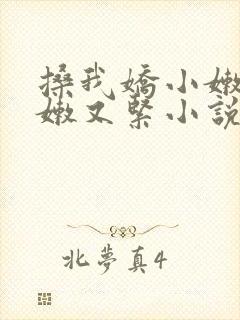 搡我嬌小嫩
嫩又緊小說
北夢真4